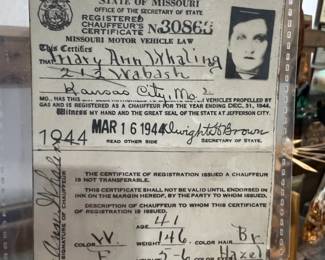 STATE OF MISSOURI
OFFICE OF THE SECRETARY OF STATE
REGISTERED
CHAUFFEUR'S
CERTIFICATE
No 30863
MISSOURI MOTOR VEHICLE LAW
This Certifies
Mary Ann Whaling
212 Wabash
Kansas City, Mo. 2
MO., HAS THIS DAY VEHICLES PROPELLED BY
GAS AND IS REGISTERED AS A CHAUFFEUR FOR THE YEAR ENDING DEC. 31, 1944,
Witness MY HAND AND THE GREAT SEAL OF THE STATE AT JEFFERSON CITY.
1944 MAR 16 1944 Dwight H Brown
READ OTHER SIDE
SECRETARY OF STATE.
THE CERTIFICATE OF REGISTRATION ISSUED A CHAUFFEUR
IS NOT TRANSFERABLE.
THIS CERTIFICATE SHALL NOT BE VALID UNTIL ENDORSED IN
INK ON THE MARGIN HEREOF, BY THE PARTY TO WHOM ISSUED.
DESCRIPTION OF CHAUFFEUR TO WHOM THIS CERTIFICATE
OF REGISTRATION IS ISSUED.
AGE 41
COLOR W. WEIGHT 146 COLOR HAIR Br.
F 5-6 Hazel
SIGNATURE OF CHAUFFEUR